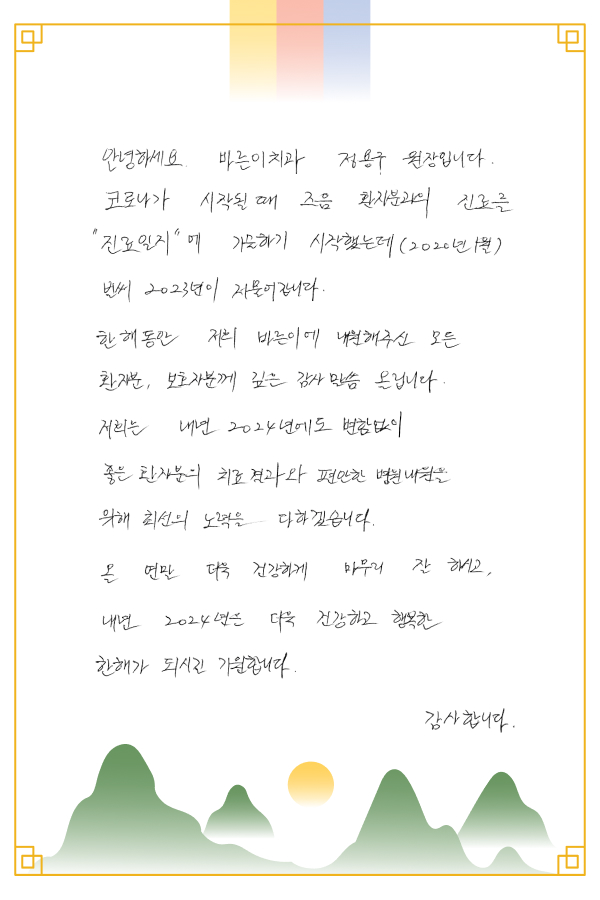 안녕하세요. 바른이치과 정용구 원장입니다.
코로나가 시작될때 즈음 환자분과의 진료를
"진료일지"에 기록하기 시작했는데 (2020년 1월)
벌써 2023년이 저물어갑니다.
한해동안 저희 바른이에 내원해주신 모든
환자분, 보호자분께 깊은 감사말씀 올립니다.
저희는 내년 2024년에도 변함없이
좋은 환자분의 치료결과와 편안한 병원내원을
위해 최선의 노력을 다하겠습니다.
몸 연말 더욱 건강하게 마무리 잘 하시고,
내년 2024년은 더욱 건강하고 행복한
한해가 되시길 기원합니다.
감사합니다.